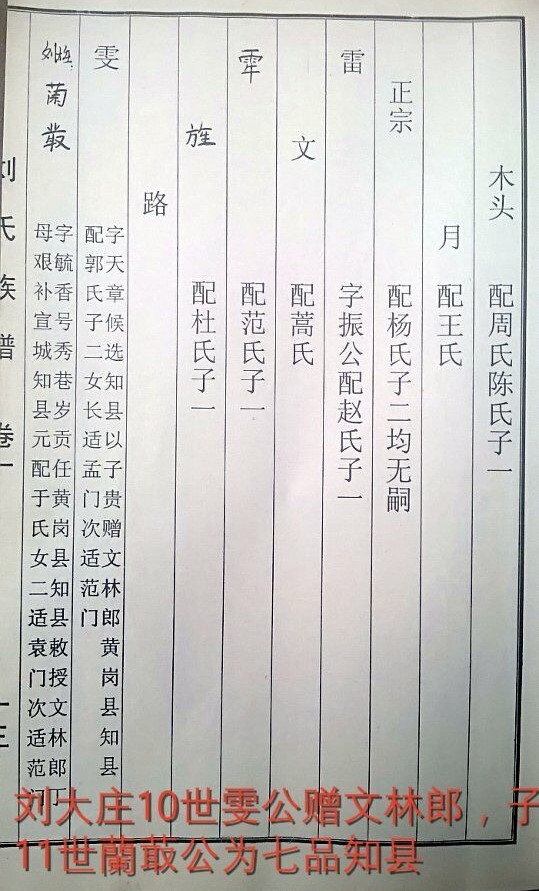 木头 配周氏陈氏子一
月 配王氏
正宗 配杨氏子二均无嗣
雷 字振公配赵氏子一
文 配蒿氏
配范氏子一
旌 配杜氏子一
路
雯 字天章候选知县以子贵赠文林郎黄岗县知县
配郭氏子二女长适孟门次适范门
蘭
字毓香号秀巷岁贡任黄岗县知县敕授文林郎丁
母艰补宣城知县元配于氏女二适袁门次适范门
刘氏族谱 卷一
十三
刘大庄10世雯公赠文林郎，子
11世蘭菆公为七品知县